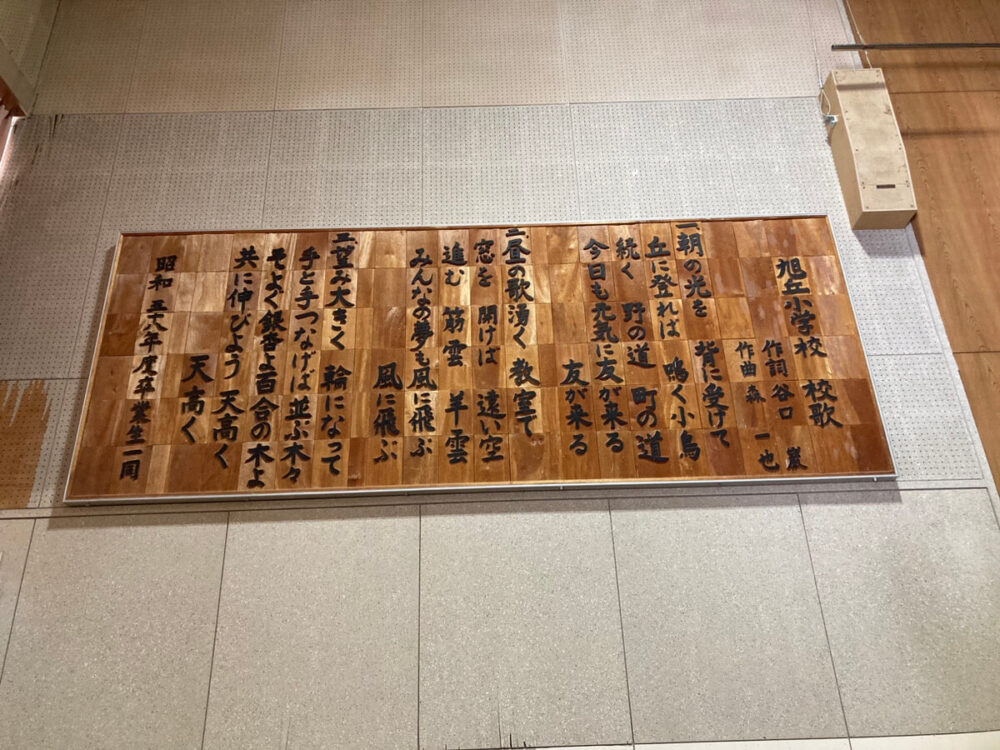 旭丘小学校 校歌
作詞 谷口 巌
作曲 森 一也
一 朝の光を 背に受けて
丘に登れば 鳴く小鳥
続く 野の道 町の道
今日も元気に友が来る
友が来る
二 昼の歌湧く 教室て
窓を 開けば 遠い空
進む 筋雲 羊雲
みんなの夢も風に飛ぶ
風に飛ぶ
三 望み大きく 輪になって
手と手つなげば 並ぶ木々
そよぐ銀杏よ百合の木よ
共に伸びよう 天高く
天高く
昭和 五十八年度卒業生一同